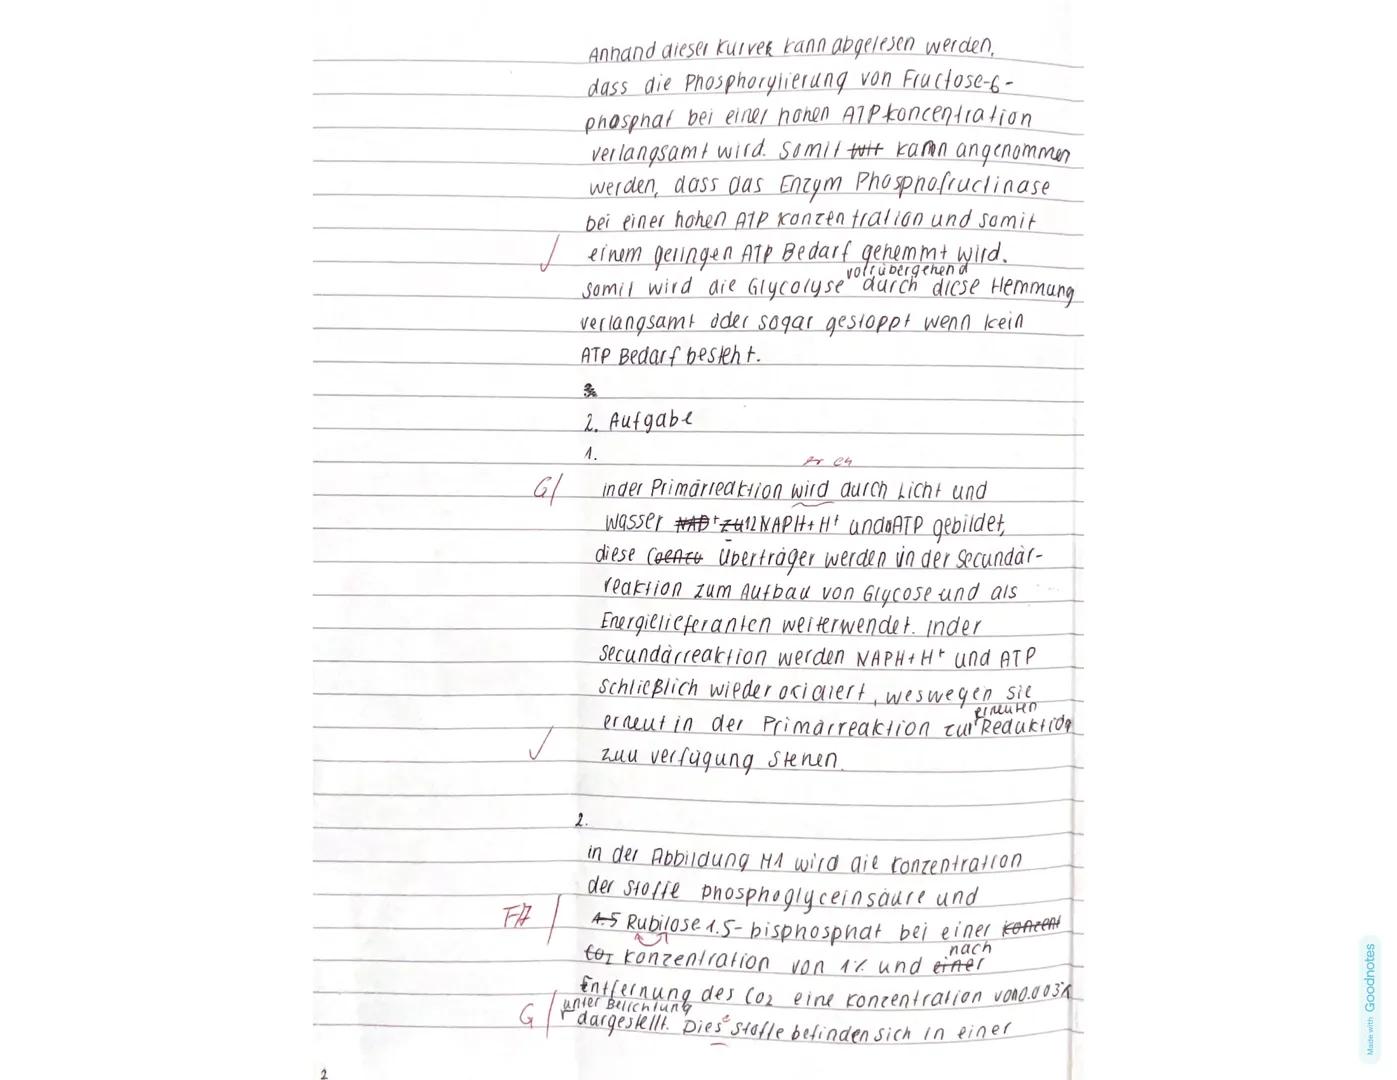 Anhand dieser Kurven kann abgelesen werden,
dass die Phosphorylierung von Fructose-6-
phosphat bei einer hohen ATP koncentration
verlangsamt wird. Somit wit kann angenommen
werden, dass das Enzym Phosphofructinase
bei einer hohen ATP Konzentration und somit
einem geringen ATP Bedarf gehemmt wird.
vorrübergehend
somit wird die Glycolyse durch diese Hemmung
verlangsamt oder sogar gestoppt wenn kein
ATP Bedarf besteht.
2. Aufgabe
1.
en
G/ in der Primärreaktion wird durch Licht und
Wasser NAD+ zu 12 NAPH+H+ und ATP gebildet,
diese Coenzu Überträger werden in der Secundär-
reaktion zum Aufbau von Glycose und als
Energielieferanten weiterwendet. in der
Secundärreaktion werden NAPH+H+ und ATP
schließlich wieder oxidiert, weswegen sie
erneuten
erneut in der Primärreaktion zur Reduktion
zuu verfügung stehen.
2.
in der Abbildung M1 wird die Konzentration
der Stoffe phosphoglyceinsäure und
1.5 Rubilose 1.5-bisphosphat bei einer konzent
nach
CO2 Konzentration von 1% und einer
Entfernung des CO2 eine Konzentration von 0.003%
unter Belichtung
G dargestellt. Diese Stoffe befinden sich in einer
2
Made with Goodnotes